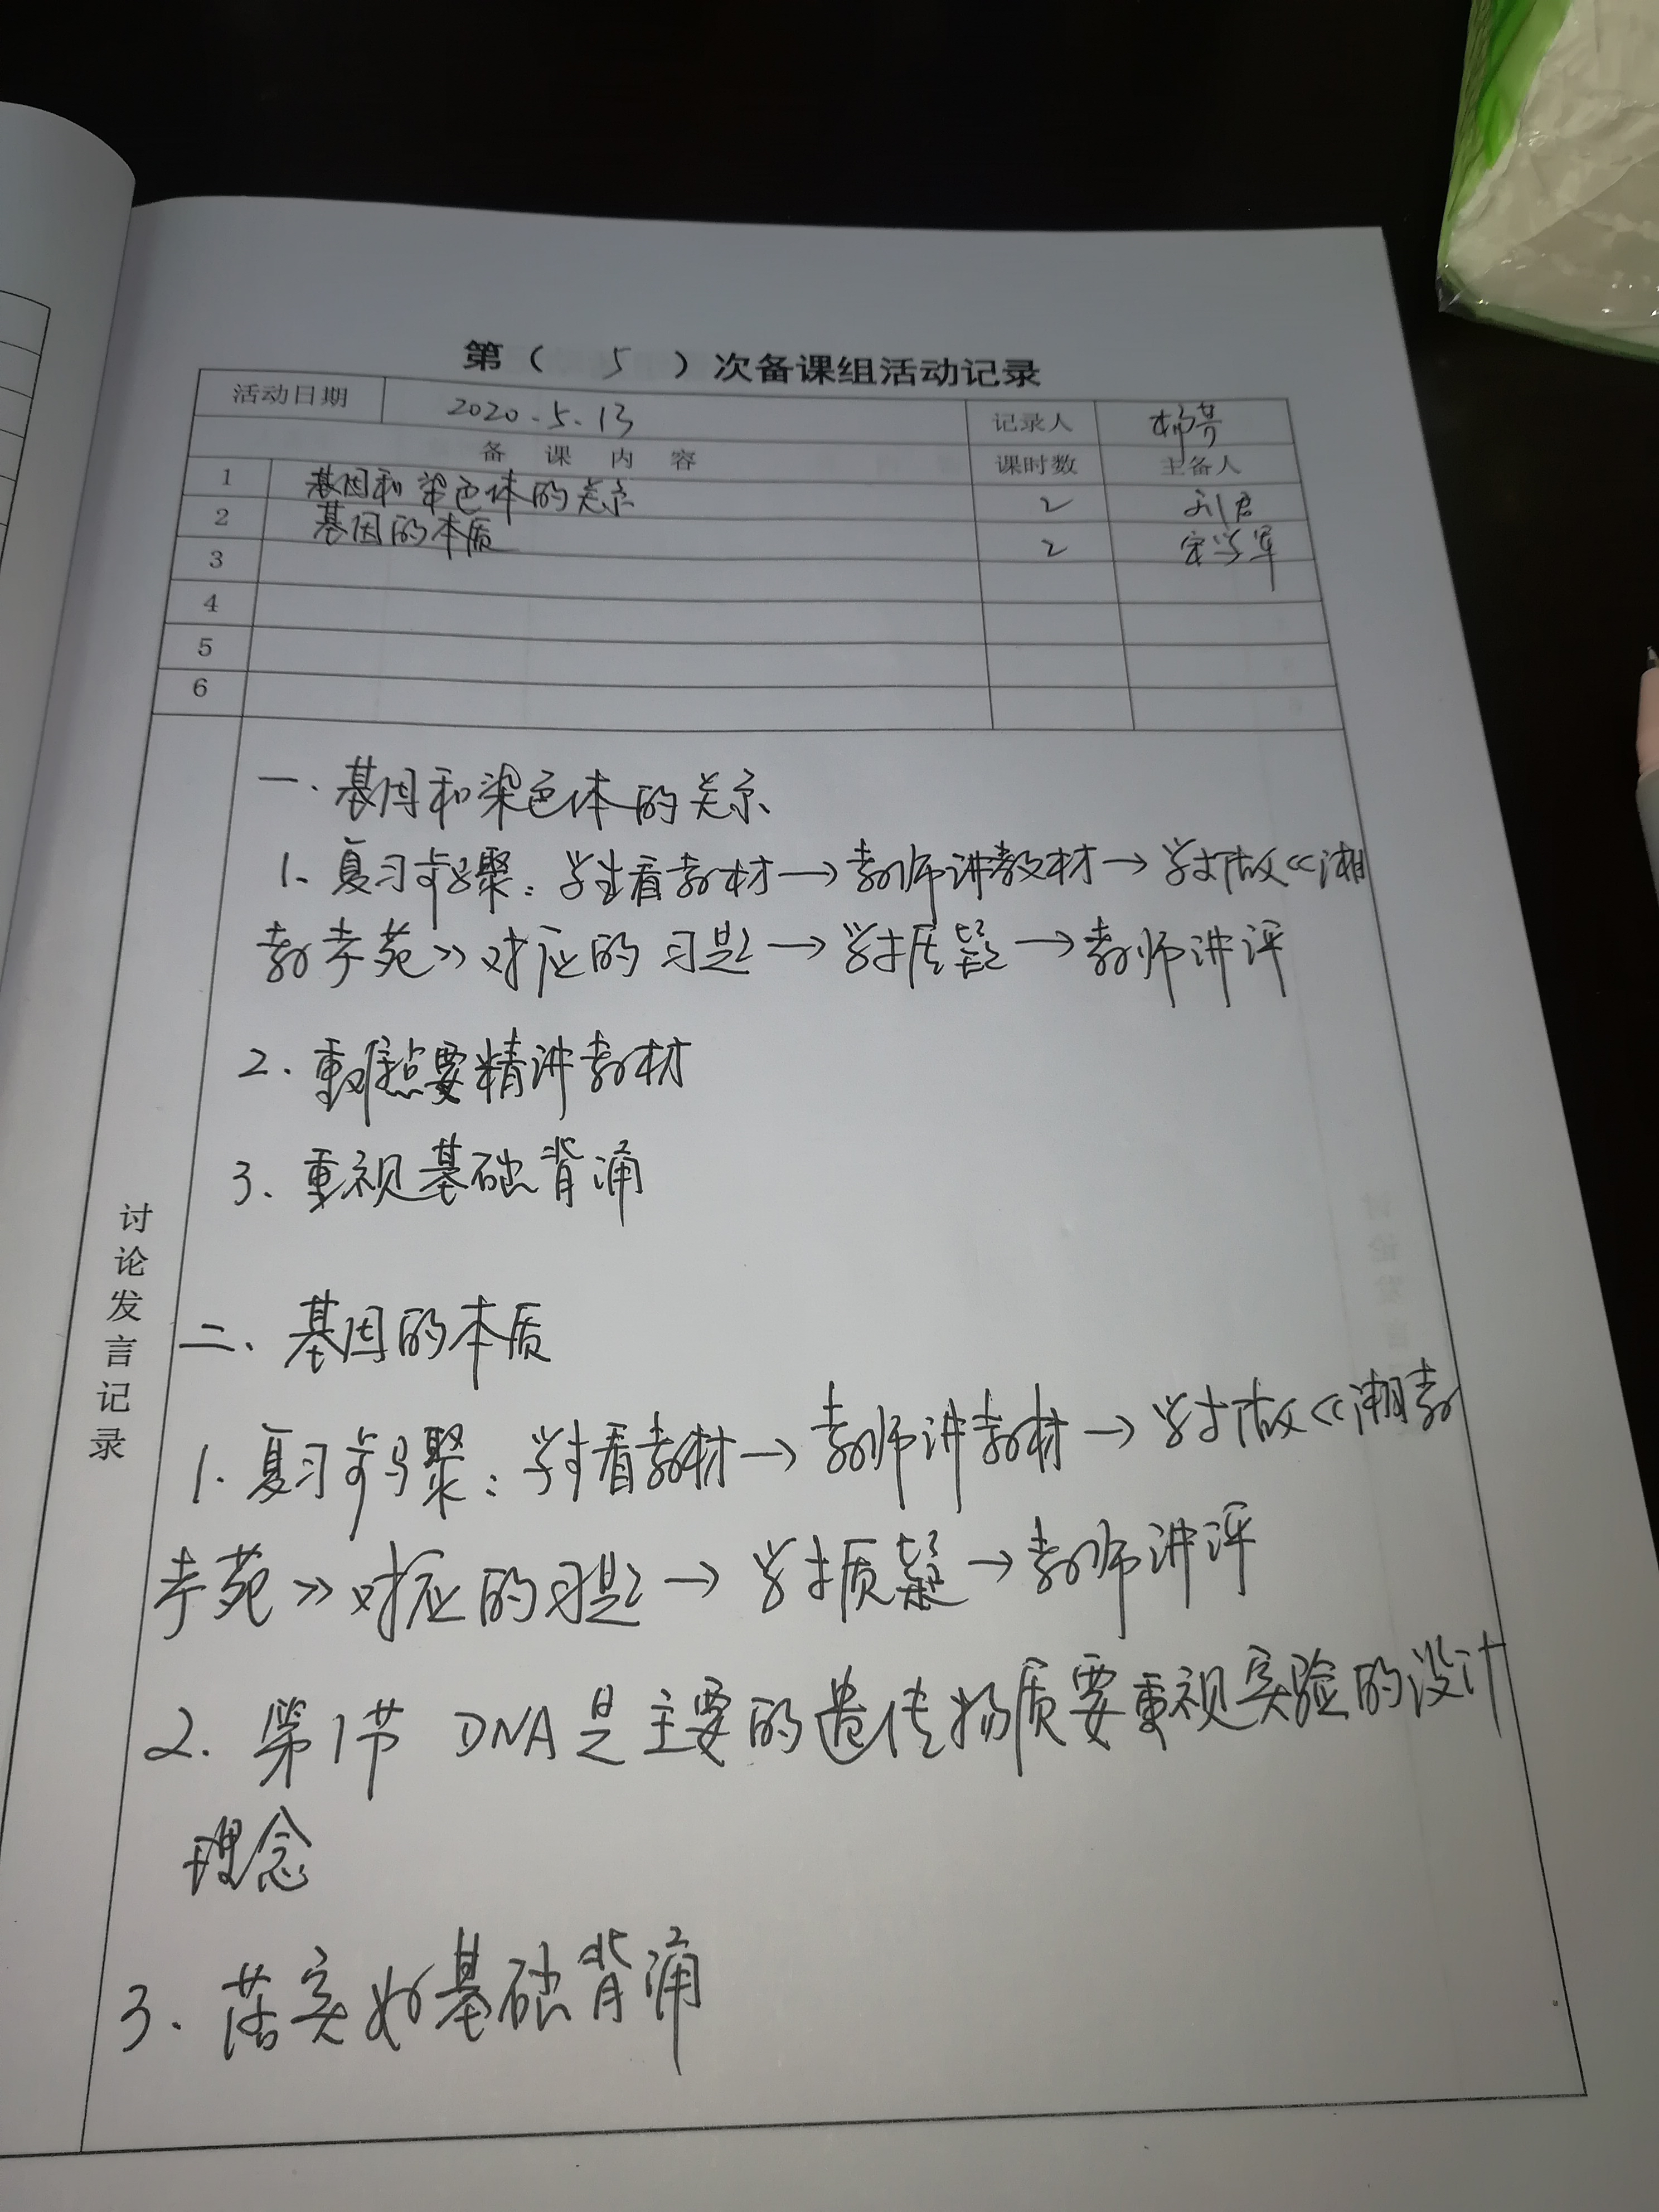 第（ 5 ）次备课组活动记录
活动日期 2020.5.13 记录人 柳芳
备课内容 课时数 主备人
1 基因和染色体的关系 2 刘君
2 基因的本质 2 宋学军
3
4
5
6
讨论发言记录
一、基因和染色体的关系
1、复习步骤：学生看教材→教师讲教材→学生做《湘
教考苑》对应的习题→学生质疑→教师讲评
2、重难点要精讲教材
3、重视基础背诵
二、基因的本质
1、复习步骤：学生看教材→教师讲教材→学生做《湘教
考苑》对应的习题→学生质疑→教师讲评
2、第1节 DNA是主要的遗传物质要重视实验的设计
理念
3、落实好基础背诵